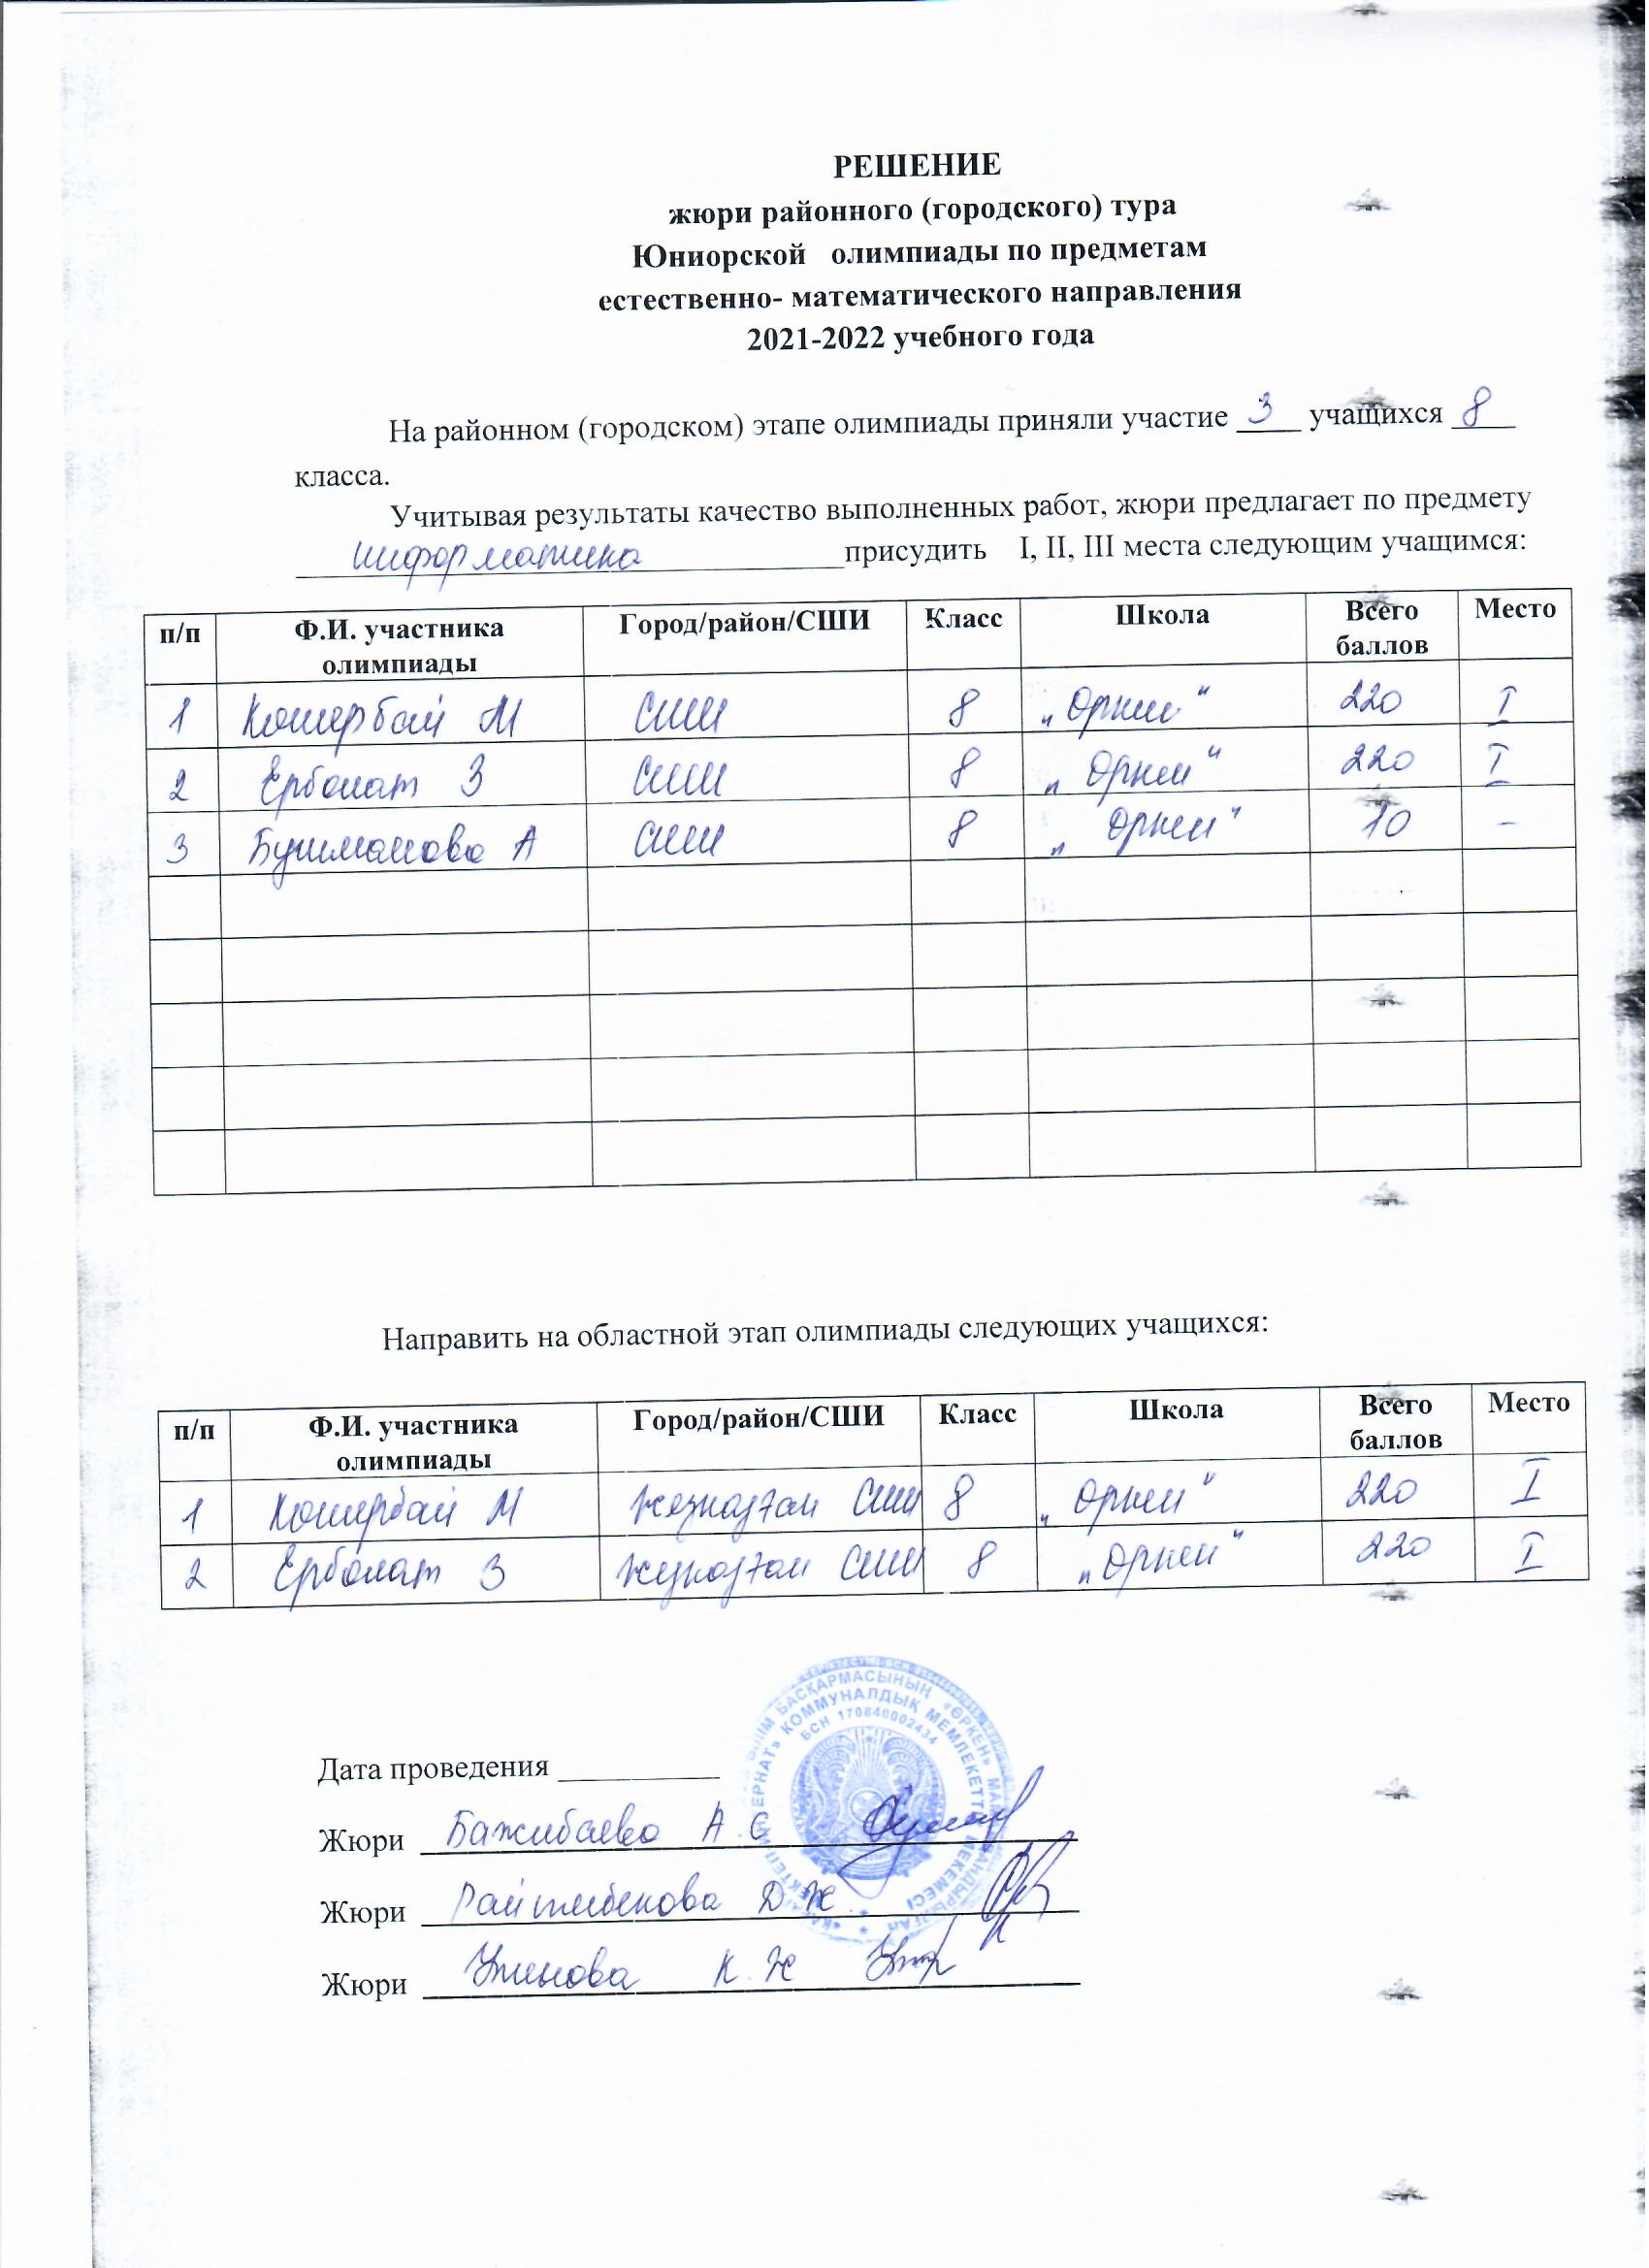 РЕШЕНИЕ
жюри районного (городского) тура
Юниорской олимпиады по предметам
естественно- математического направления
2021-2022 учебного года
На районном (городском) этапе олимпиады приняли участие 3 учащихся 8
класса.
Учитывая результаты качество выполненных работ, жюри предлагает по предмету
информатика присудить I, II, III места следующим учащимся:
п/п Ф.И. участника олимпиады Город/район/СШИ Класс Школа Всего баллов Место
1 Кошербай М СШИ 8 „Өркен“ 220 I
2 Ерболат З СШИ 8 „Өркен“ 220 I
3 А СШИ 8 „Өркен“ 10 -
Направить на областной этап олимпиады следующих учащихся:
п/п Ф.И. участника олимпиады Город/район/СШИ Класс Школа Всего баллов Место
1 Кошербай М Жезказган СШИ 8 „Өркен“ 220 I
2 Ерболат З Жезказган СШИ 8 „Өркен“ 220 I
БІЛІМ БАСҚАРМАСЫНЫҢ «ӨРКЕН»
КОММУНАЛДЫҚ МЕМЛЕКЕТТІК МЕКЕМЕСІ
БСН 170840002434
Дата проведения
Жюри Бажибаева А С
Жюри Д Ж
Жюри К. Ж